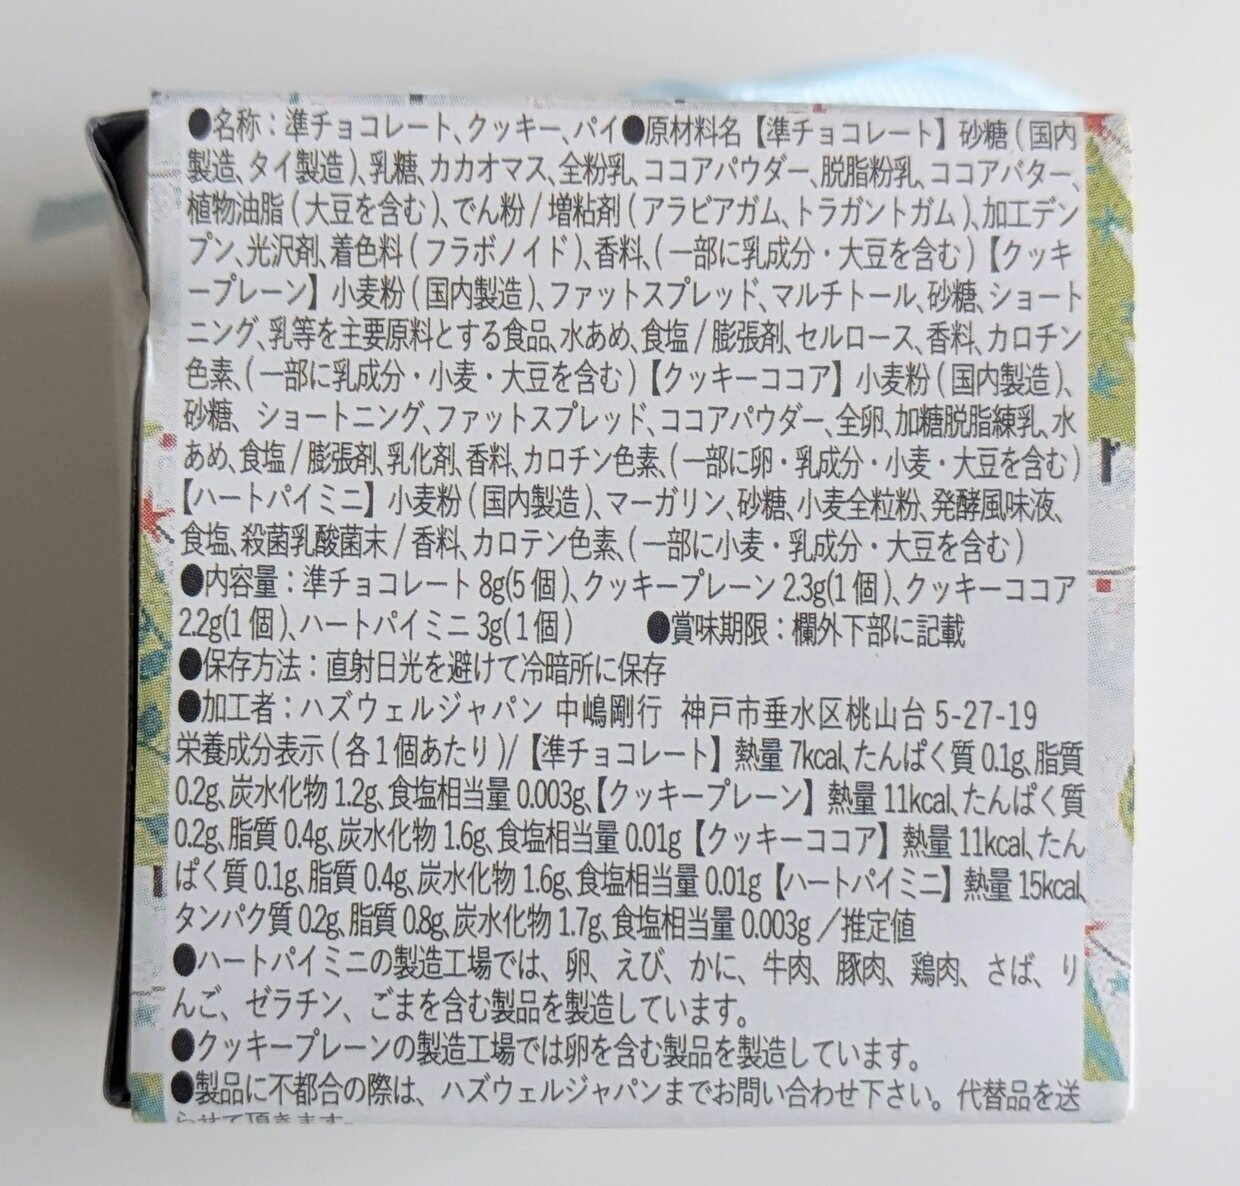 ●名称：準チョコレート、クッキー、パイ●原材料名【準チョコレート】砂糖(国内
製造、タイ製造)、乳糖、カカオマス、全粉乳、ココアパウダー、脱脂粉乳、ココアバター、
植物油脂(大豆を含む)、でん粉/増粘剤(アラビアガム、トラガントガム)、加工デン
プン、光沢剤、着色料(フラボノイド)、香料、(一部に乳成分・大豆を含む)【クッキ
ープレーン】小麦粉(国内製造)、ファットスプレッド、マルチトール、砂糖、ショート
ニング、乳等を主要原料とする食品、水あめ、食塩/膨張剤、セルロース、香料、カロチン
色素、(一部に乳成分・小麦・大豆を含む)【クッキーココア】小麦粉(国内製造)、
砂糖、 ショートニング、ファットスプレッド、ココアパウダー、全卵、加糖脱脂練乳、水
あめ、食塩/膨張剤、乳化剤、香料、カロチン色素、(一部に卵・乳成分・小麦・大豆を含む)
【ハートパイミニ】小麦粉(国内製造)、マーガリン、砂糖、小麦全粒粉、発酵風味液、
食塩、殺菌乳酸菌末/香料、カロテン色素、(一部に小麦・乳成分・大豆を含む)
●内容量：準チョコレート8g(5個)、クッキープレーン2.3g(1個)、クッキーココア
2.2g(1個)、ハートパイミニ3g(1個) ●賞味期限：欄外下部に記載
●保存方法：直射日光を避けて冷暗所に保存
●加工者：ハズウェルジャパン 中嶋剛行 神戸市垂水区桃山台5-27-19
栄養成分表示(各1個あたり)/【準チョコレート】熱量7kcal、たんぱく質0.1g、脂質
0.2g、炭水化物1.2g、食塩相当量0.003g、【クッキープレーン】熱量11kcal、たんぱく質
0.2g、脂質0.4g、炭水化物1.6g、食塩相当量0.01g【クッキーココア】熱量11kcal、たん
ぱく質0.1g、脂質0.4g、炭水化物1.6g、食塩相当量0.01g【ハートパイミニ】熱量15kcal、
タンパク質0.2g、脂質0.8g、炭水化物1.7g、食塩相当量0.003g／推定値
●ハートパイミニの製造工場では、卵、えび、かに、牛肉、豚肉、鶏肉、さば、り
んご、ゼラチン、ごまを含む製品を製造しています。
●クッキープレーンの製造工場では卵を含む製品を製造しています。
●製品に不都合の際は、ハズウェルジャパンまでお問い合わせ下さい。代替品を送
らせて頂きます。